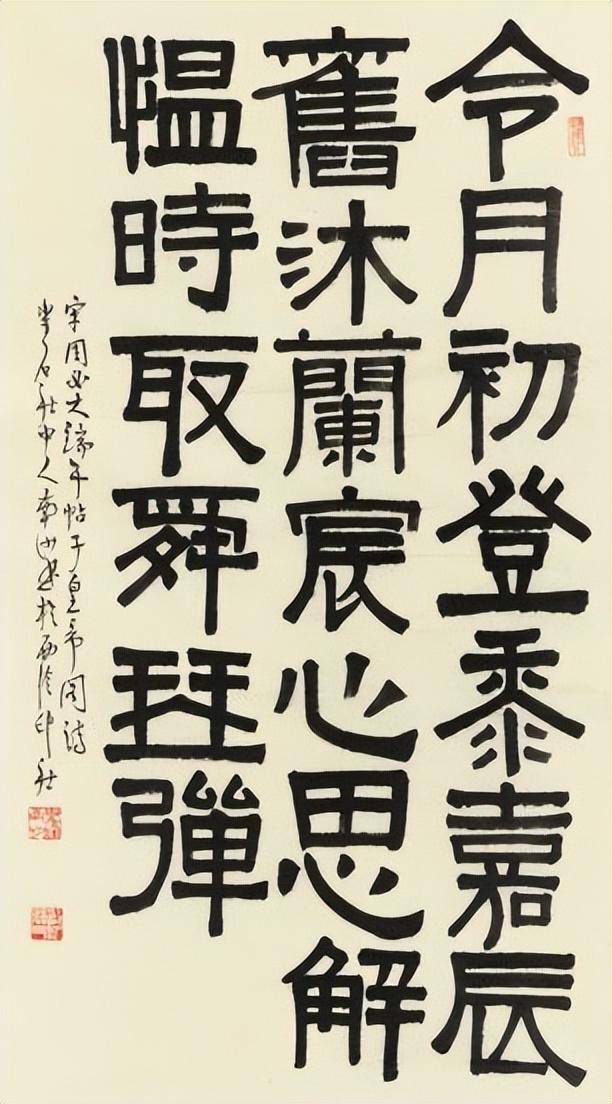 令月初登黍嘉辰
舊沐蘭宸心思解
慍時取舜琴彈
宋周必大端午帖子皇帝閣詩
社中人南書於西泠印社